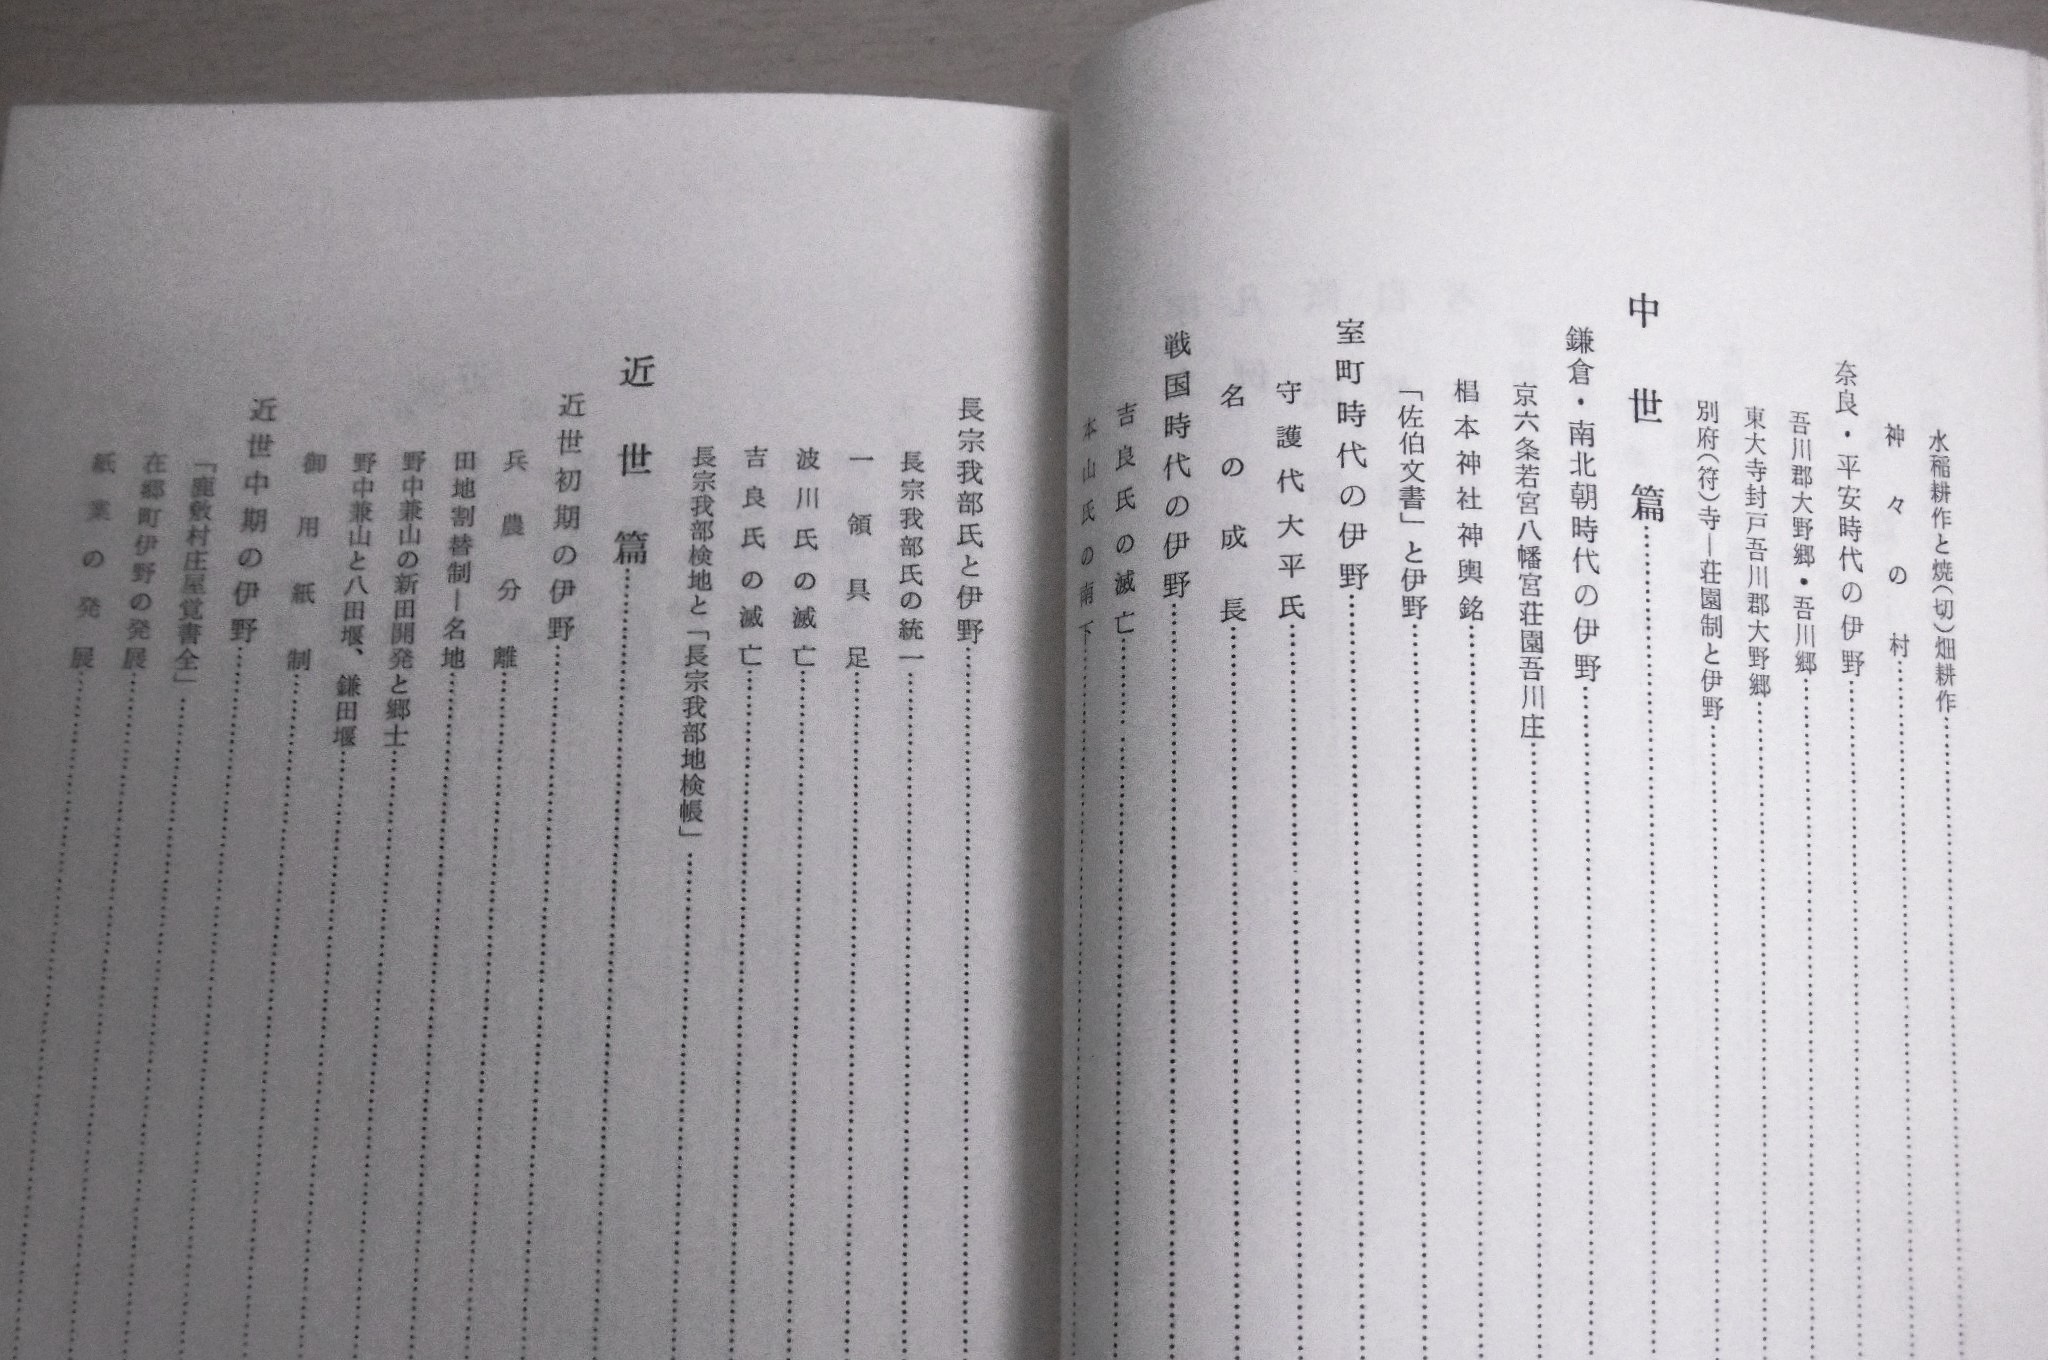 水稲耕作と焼(切)畑耕作
神々の村
奈良・平安時代の伊野
吾川郡大野郷・吾川郷
東大寺封戸吾川郡大野郷
別府(符)寺―荘園制と伊野
中世篇
鎌倉・南北朝時代の伊野
京六条若宮八幡宮荘園吾川庄
椙本神社神輿銘
「佐伯文書」と伊野
室町時代の伊野
守護代大平氏
名の成長
戦国時代の伊野
吉良氏の滅亡
本山氏の南下
長宗我部氏と伊野
長宗我部氏の統一
一領具足
波川氏の滅亡
吉良氏の滅亡
長宗我部検地と「長宗我部地検帳」
近世篇
近世初期の伊野
兵農分離
田地割替制―名地
野中兼山の新田開発と郷士
野中兼山と八田堰、鎌田堰
御用紙制
近世中期の伊野
「鹿敷村庄屋覚書全」
在郷町伊野の発展
紙業の発展